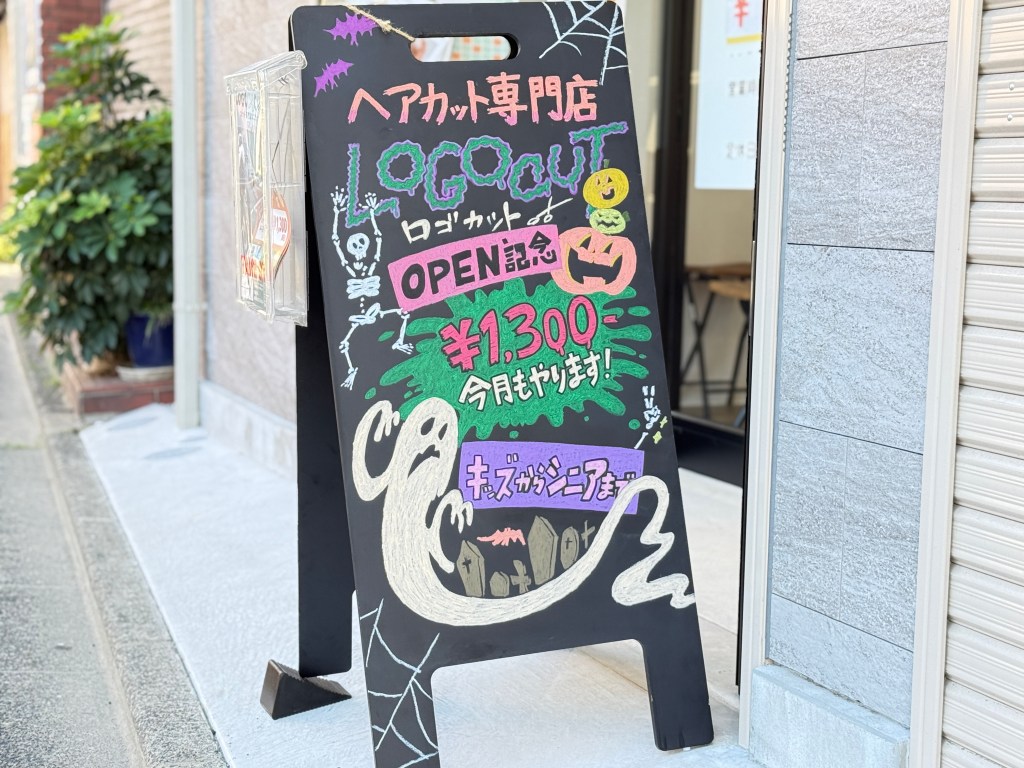 ヘアカット専門店
LOGOCUT
ロゴカット
OPEN記念
¥1,300-
今月もやります!
キッズからシニアまで
¥